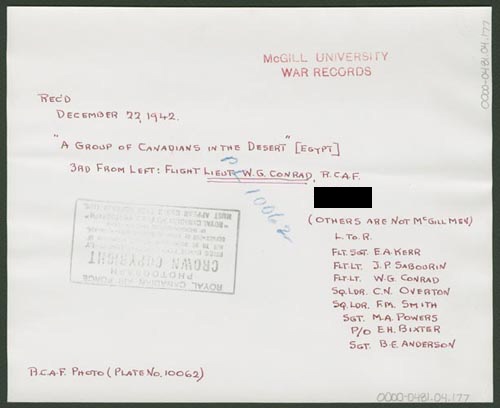 0000-0481.04.177
McGILL UNIVERSITY
WAR RECORDS
REC'D
DECEMBER 22, 1942.
"A GROUP OF CANADIANS IN THE DESERT" [EGYPT]
3RD FROM LEFT: FLIGHT LIEUT. W.G. CONRAD, R.C.A.F.
PL 10062
(OTHERS ARE NOT McGILL MEN)
L. TO R.
FLT. SGT. E.A. KERR
FLT. LT. J.P. SABOURIN
FLT. LT. W.G. CONRAD
SQ. LDR. C.N. OVERTON
SQ. LDR. F.M. SMITH
SGT. M.A. POWERS
P/O E.H. BIXTER
SGT. B.E. ANDERSON
ROYAL CANADIAN AIR FORCE
PHOTOGRAPH
CROWN COPYRIGHT
MUST APPEAR
"ROYAL CANADIAN
R.C.A.F. PHOTO (PLATE NO. 10062)
0000-0481.04.177